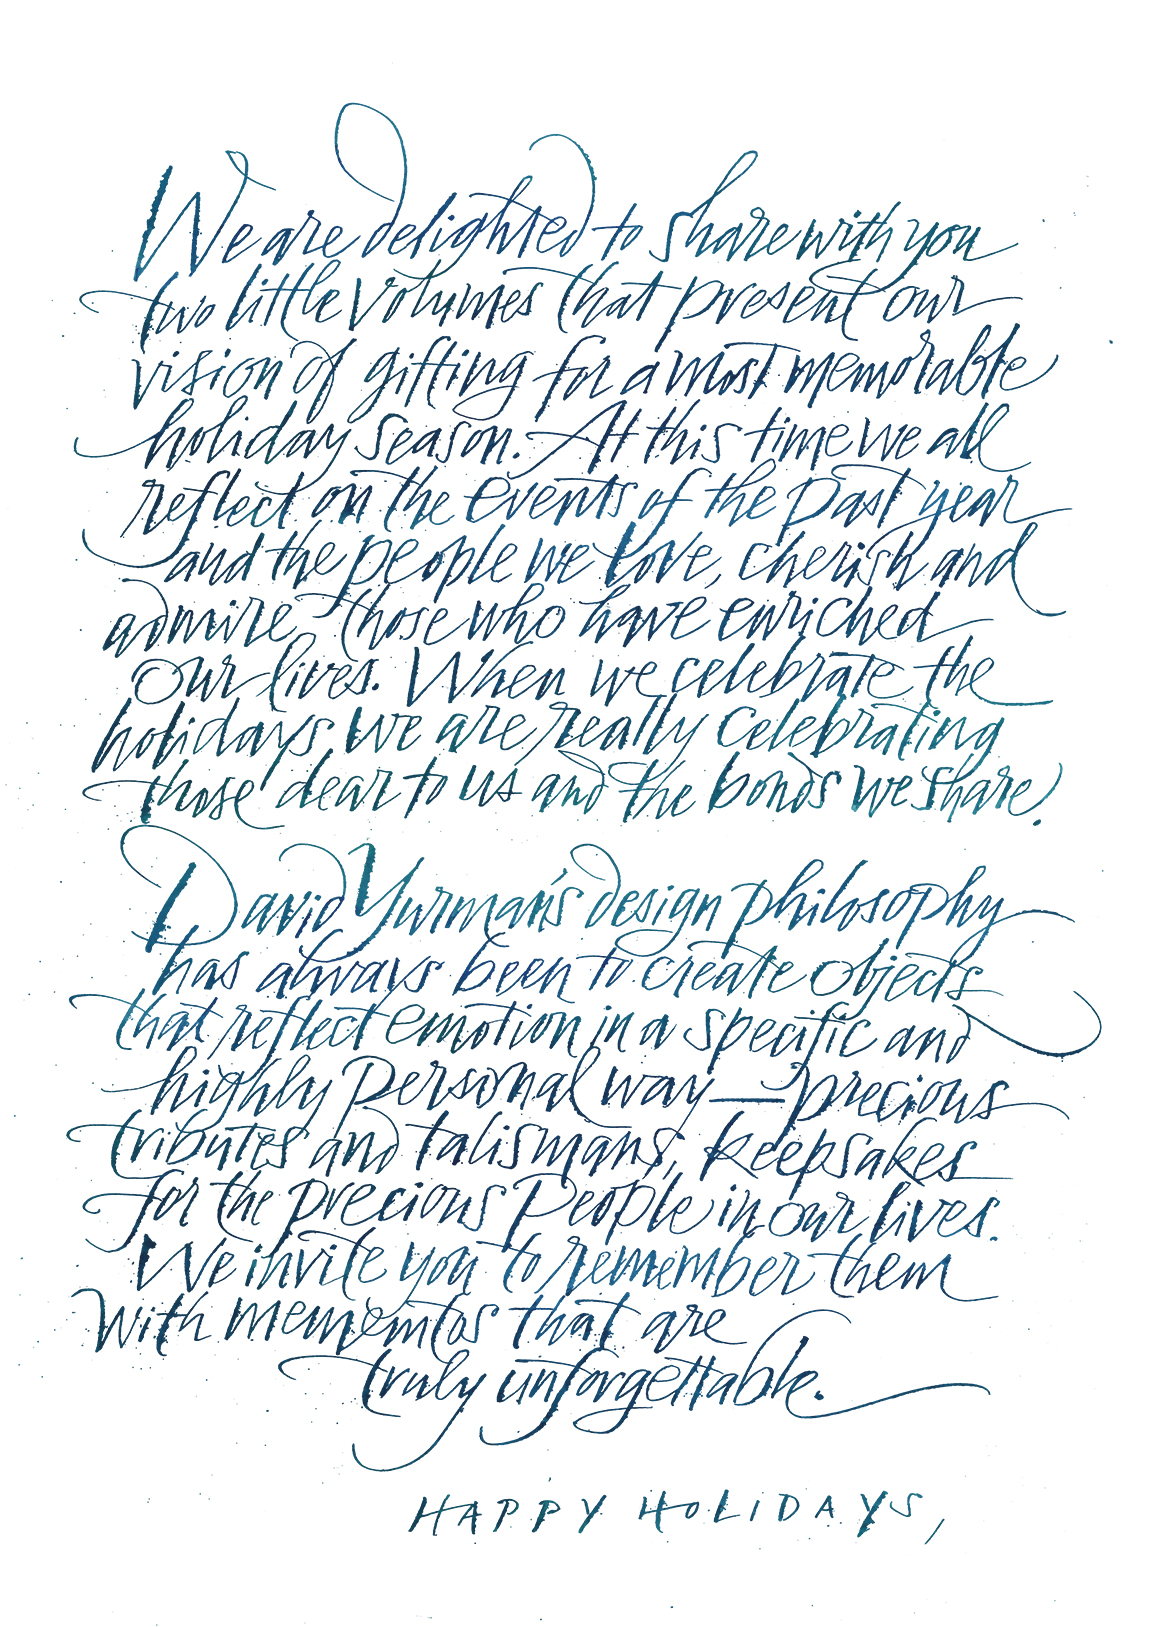 We are delighted to share with you
two little volumes that present our
vision of gifting for a most memorable
holiday season. At this time we all
reflect on the events of the past year
and the people we love, cherish and
admire, those who have enriched
our lives. When we celebrate the
holidays we are really celebrating
those dear to us and the bonds we share.
David Yurman's design philosophy
has always been to create objects
that reflect emotion in a specific and
highly personal way — precious
tributes and talismans, keepsakes
for the precious people in our lives.
We invite you to remember them
with mementos that are
truly unforgettable.
HAPPY HOLIDAYS,